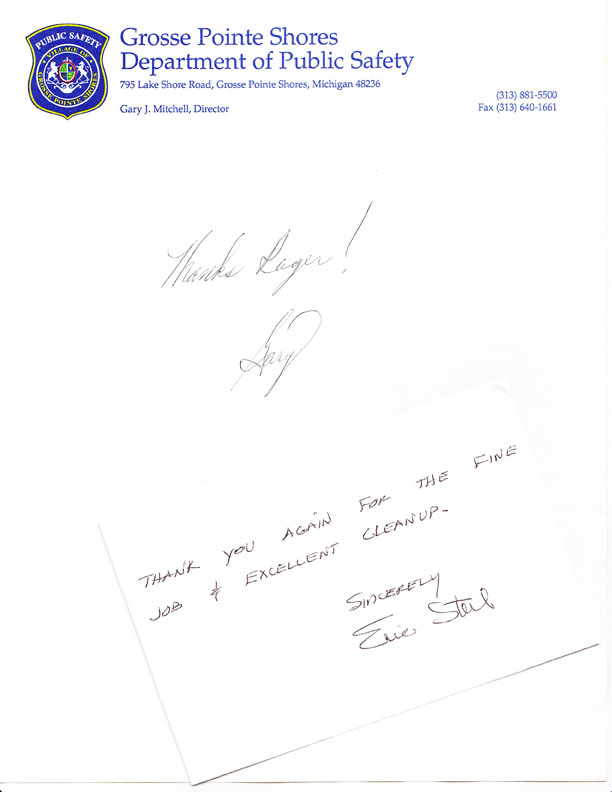 PUBLIC SAFETY
VILLAGE OF
GROSSE POINTE SHORES
Grosse Pointe Shores
Department of Public Safety
795 Lake Shore Road, Grosse Pointe Shores, Michigan 48236
Gary J. Mitchell, Director
(313) 881-5500
Fax (313) 640-1661
Thanks Roger!
Gary
THANK YOU AGAIN FOR THE FINE
JOB & EXCELLENT CLEANUP.
SINCERELY
Eric